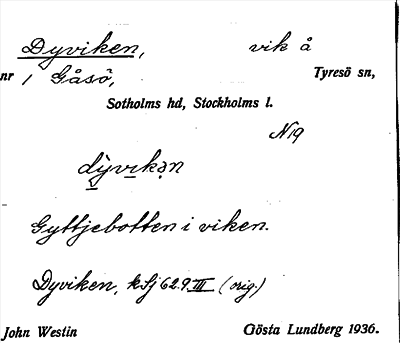 Dyviken, vik å
nr 1 Gåsö, Tyresö sn,
Sotholms hd, Stockholms l.
N 19
dyvikən
Gyttjebotten i viken.
Dyviken, kSj 62.9.III (orig.)
John Westin Gösta Lundberg 1936.